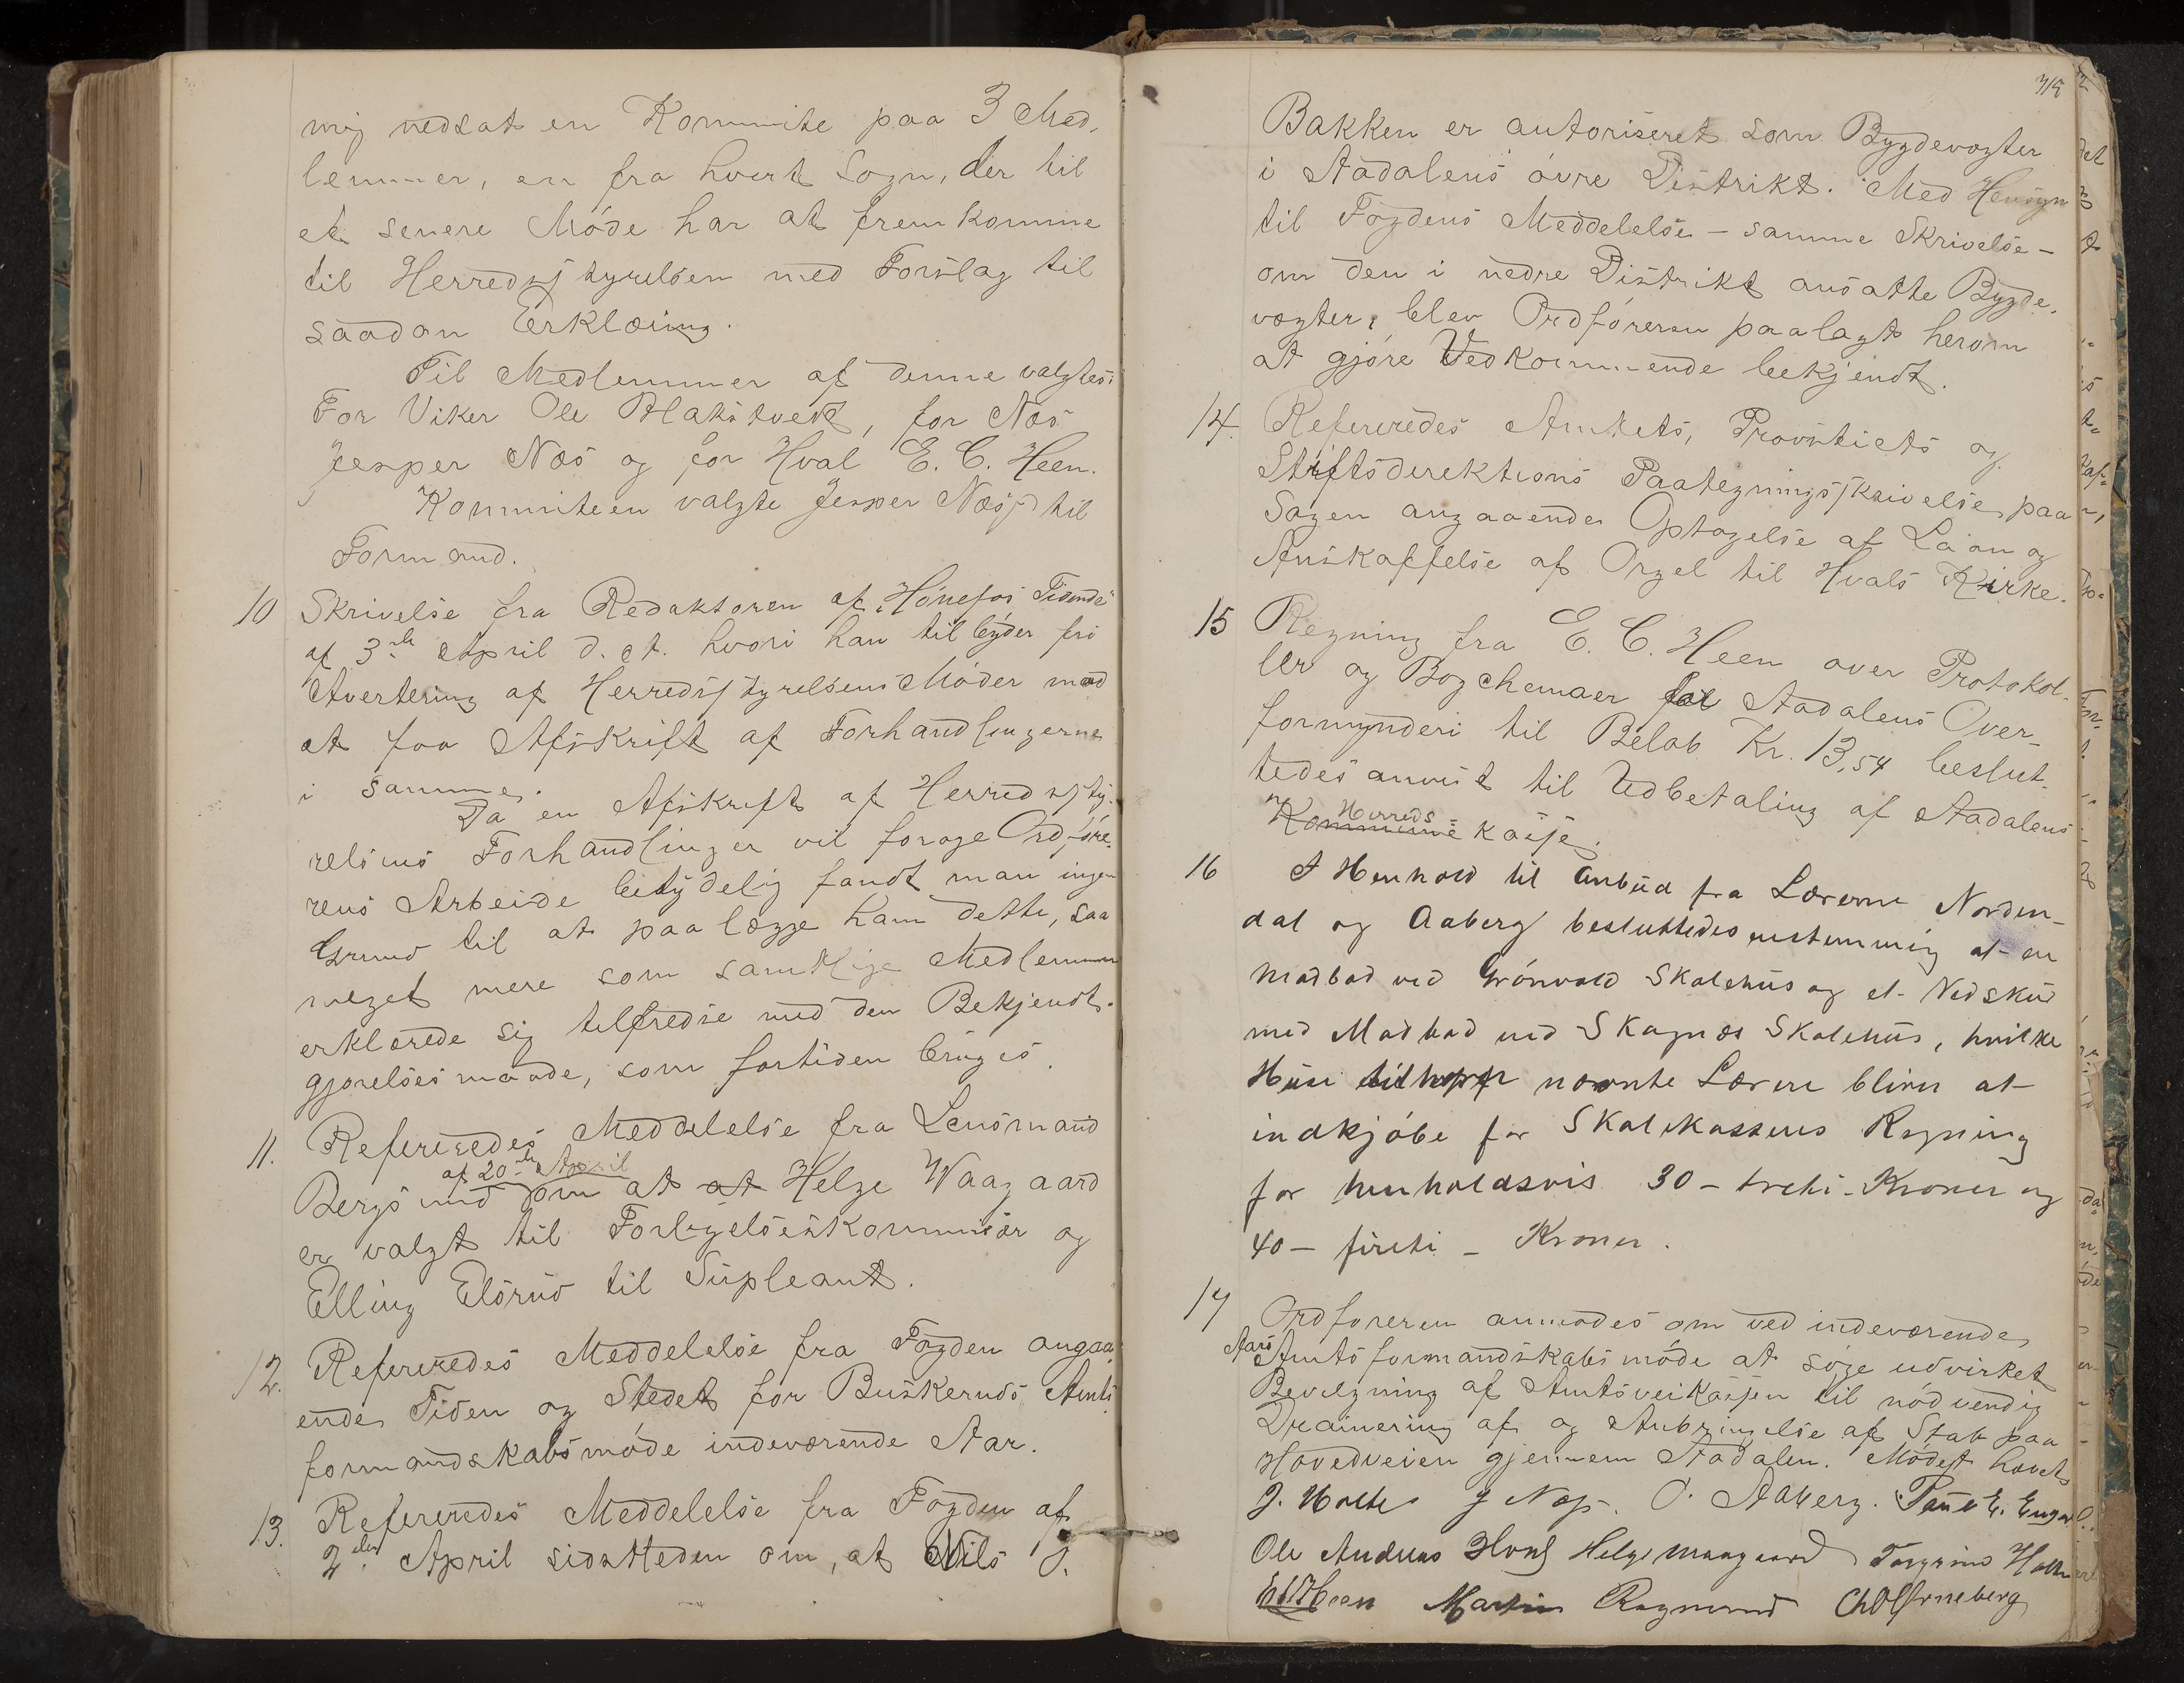 mig nedsat en Kommite paa 3 Med-
lemmer, en fra hvert Sogn, der til
et senere Møde har at fremkomme
til Herredsstyrelsen med Forslag til
saadan Erklæring.
Til Medlemmer af denne valgtes:
For Viker Ole Hakstvedt, for Næs
Jesper Næs og for Hval E. C. Heen.
Kommiteen valgte Jesper Næss til
Formand.
10 Skrivelse fra Redaktøren af "Hønefos Tidende"
af 3die April d. A. hvori han tilbyder fri
Avertering af Herredsstyrelsens Møder mod
at faa Afskrift af Forhandlingerne
i samme.
Da en Afskrift af Herredssty-
relsens Forhandlinger vil forøge Ordføre-
rens Arbeide betydelig fandt man ingen
Grund til at paalægge ham dette, saa
meget mere som samtlige Medlemmer
erklærede sig tilfredse med den Bekjendt-
gjørelsesmaade, som fortiden bruges.
11. Refereredes Meddelelse fra Lensmand
af 20de April
Bergsund om at at Helge Waagaard
er valgt til Forligelseskommisær og
Elling Elsrud til Supleant.
12. Refereredes Meddelelse fra Fogden angaa-
ende Tiden og Stedet for Buskeruds Amts
formandskabsmøde indeværende Aar.
13. Refereredes Meddelelse fra Fogden af
2den April sidstleden om, at Nils O.
315
Bakken er autoriseret som Bygdevogter
i Aadalens øvre Distrikt. Med Hensyn
til Fogdens Meddelelse - samme Skrivelse -
om den i nedre Distrikt ansatte Bygde-
vogter, blev Ordføreren paalagt herom
at gjøre Vedkommende bekjendt.
14. Refereredes Amtets, Provstiets og
Stiftsdirektions Paategningsskrivelse paa
Sagen angaaende Optagelse af Laan og
Anskaffelse af Orgel til Hvals Kirke.
15 Regning fra E. C. Heen over Protokol-
ler og Bogchemaer for Aadalens Over-
formynderi til Beløb Kr. 13,54 beslut-
tedes anvist til Udbetaling af Aadalens
Herreds-
Kommune kasse.
16 I Henhold til Anbud fra Lærerne Norden-
dal og Aaberg besluttedes enstemmig at en
Madbod ved Grønvold Skolehus og et Vedskur
med Madbod ved Skagnæs Skolehus, hvilke
Huse nævnte Lærere bliver at
indkjøbe for Skolekassens Regning
for henholdsvis 30 - treti - Kroner og
40 - fireti - Kroner.
17 Ordføreren anmodes om ved indeværende
Aars Amtsformandskabsmøde at søge udvirket
Bevilgning af Amtsveikassen til nødvendig
Drainering af og Anbringelse af Stab paa
Hovedveien gjennem Aadalen. Mødet hævet
J. Holte J Næs. O. Aaberg. E. Enger
Ole Andreas Hval Helge Waagaard Torgrim Holte
E C Heen Martin Ragnerud